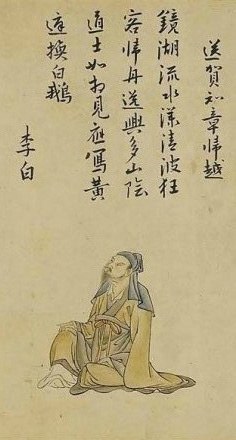 送賀知章歸越
鏡湖流水漾清波狂
客歸舟逸興多山陰
道士如相見應寫黃
庭換白鵝
李白